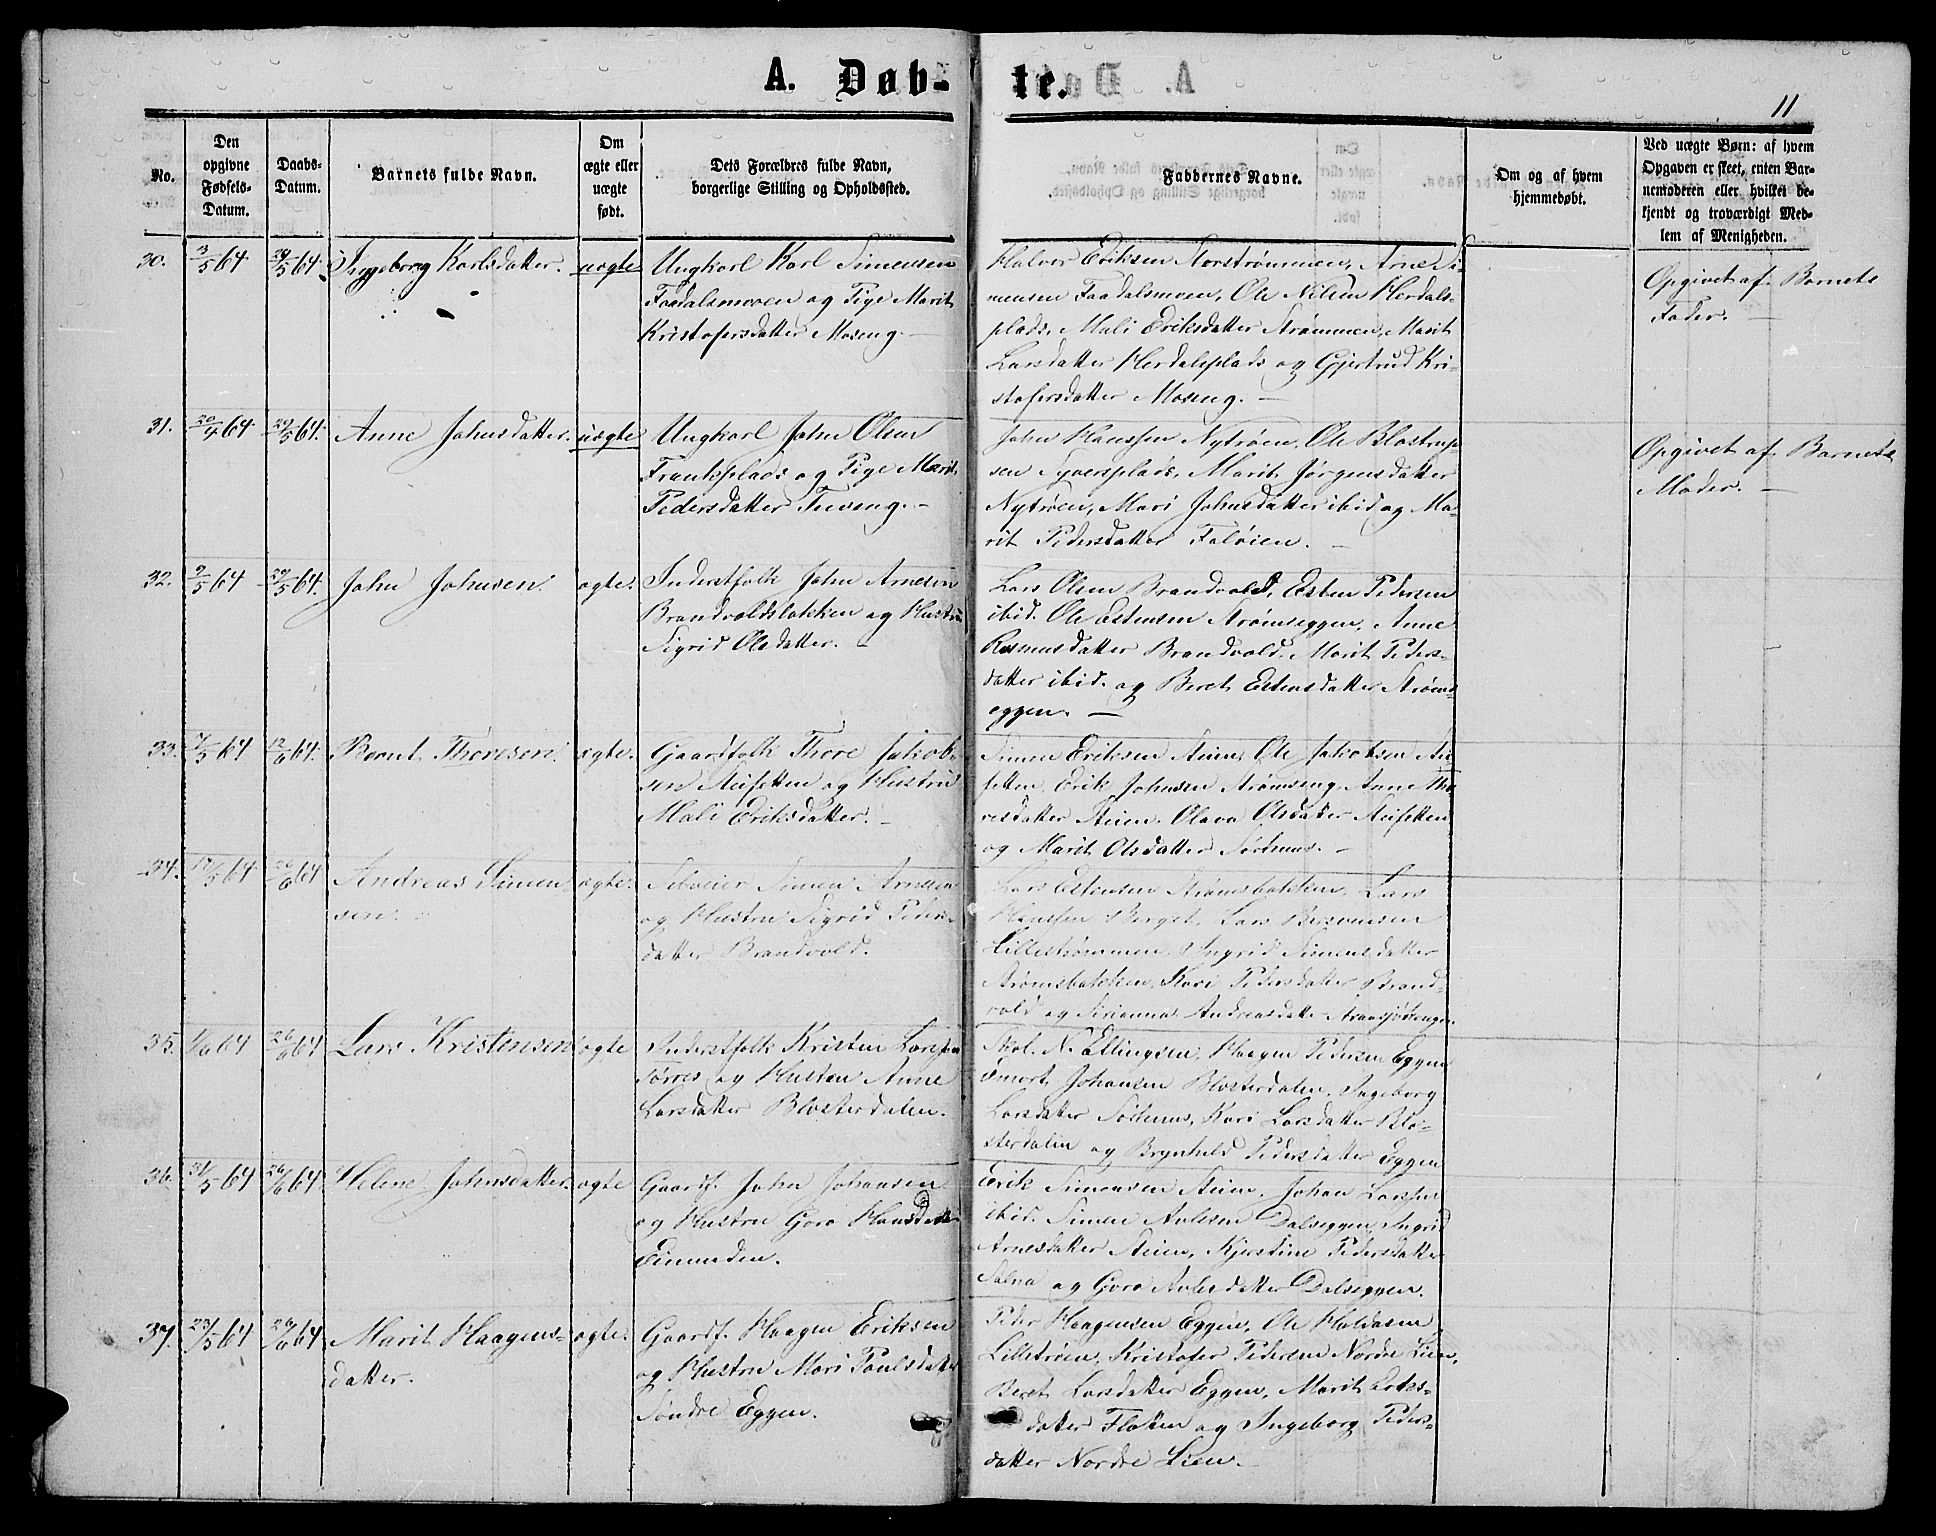 A. Døb-
te.
11
No.
Den
opgivne
Fødsels-
Datum.
Daabs-
Datum.
Barnets fulde Navn.
Om
ægte eller
uægte
født.
Dets Forældres fulde Navn,
borgerlige Stilling og Opholdssted.
Faddernes Navne.
Om og af hvem
hjemmedøbt.
Ved uægte Børn: af hvem
Opgaven er skeet, enten Bar-
nemoderen eller hvilket be-
kjendt og troværdigt Med-
lem af Menigheden.
30.
3/5 64
29/5 64.
Ingeborg Karlsdatter.
uægte
Ungkarl Karl Simensen
Faadalsmoen og Pige Marit
Kristofersdatter Moseng. —
Halvor Eriksen Storstrømmen, Arne Si-
mensen Faadalsmoen, Ole Nilsen Herdals-
plads, Mali Eriksdatter Strømmen, Marit
Larsdatter Herdalsplads og Gjertrud Kri-
stofersdatter Moseng. —
Opgivet af Barnets
Fader. —
31.
20/4 64
29/5 64.
Anne Johnsdatter.
uægte
Ungkarl John Olsen
Fransplads og Pige Marit
Pedersdatter Tveeng. —
John Hanssen Nytrøen, Ole Blostrup-
sen Syversplads, Marit Jørgensdatter
Nytrøen, Mari Johnsdatter ibid og Ma-
rit Pedersdatter Faløien. —
Opgivet af Barnets
Moder. —
32.
9/5 64
29/5 64.
John Johnsen.
ægte.
Inderstfolk John Arnesen
Brandvoldsbakken og Hustru
Sigrid Olsdatter. —
Lars Olsen Brandvold, Esten Pedersen
ibid. Ole Estensen Strømseggen, Anne
Rasmusdatter Brandvold, Marit Peders-
datter ibid. og Beret Estensdatter Strøms-
eggen. —
33.
7/5 64
12/6 64.
Bernt Thoresen.
ægte.
Gaardfolk Thore Jakob-
sen Aufetten og Hustru
Mali Eriksdatter. —
Simen Eriksen Steien, Ole Jakobsen Au-
fetten, Erik Johnsen Strømseng, Anne Tho-
resdatter Steien, Olava Olsdatter Aufetten
og Marit Olsdatter Sørhuus. —
34.
17/5 64
26/6 64
Andreas Simen-
sen.
ægte.
Selveier Simen Arnesen
og Hustru Sigrid Peders-
datter Brandvold.
Lars Estensen Strømsbakken, Lars
Hanssen Berget, Lars Bersvensen
Lillestrømmen, Ingrid Simensdatter
Strømsbakken, Kari Pedersdatter Brand-
vold og Andreasdatter
35.
1/6 64
26/6 64
Lars Kristensen
ægte
Inderstfolk Kristen Larssen
Sørres og Hustru Anne
Larsdatter Blosterdalen.
Skol. N. Ellingsen, Haagen Pedersen Eggen
Emort Johansen Blosterdalen, Ingeborg
Larsdatter Sørhuus, Kari Larsdatter Blo-
sterdalen og Brynhild Pedersdatter Eggen
36.
31/5 64
26/6 64
Helene Johnsdatter.
ægte
Gaardf. John Johansen
og Hustru Goro Hansdatter
Einunden.
Erik Simensen Steien, Johan Larssen
ibid. Simen Avlesen Dalseggen, Ingrid
Arnesdatter Steien, Kjerstine Pedersdatter
og Goro datter Dalseggen.
37.
23/5 64
26/6 64
Marit Haagens-
datter.
ægte.
Gaardf. Haagen Eriksen
og Hustru Mari Paulsdatter
Søndre Eggen.
Peder Haagensen Eggen, Ole Haldosen
Lilletrøen, Kristofer Pedersen Nordre Lien,
Beret Larsdatter Eggen, Marit
datter Floten og Ingeborg Peders-
datter Nordre Lien. —